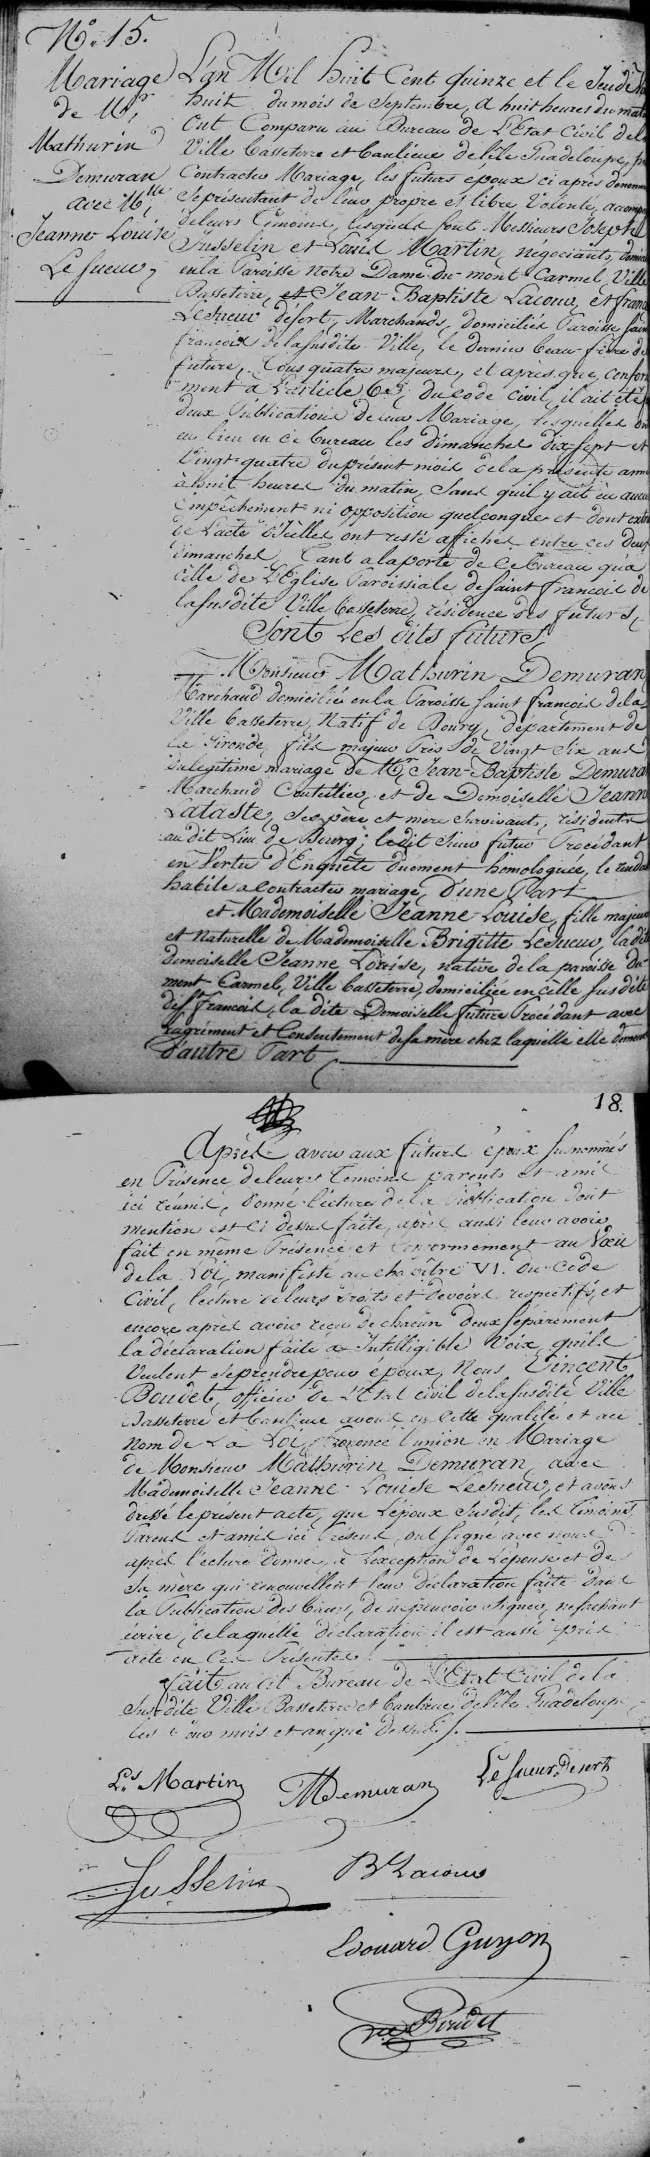 N.° 15.
Mariage
de M.r
Mathurin
Demuran
avec M.lle
Jeanne Louise
Le Sueur,
L'an Mil huit Cent quinze et le Jeudi
huit du mois de Septembre, a huit heures du matin
Ont Comparu au Bureau de L'Etat Civil de la
Ville Basseterre et banlieue de l'ile Guadeloupe, pr
Contracter Mariage, les futurs epoux ci après
Se présentant de leur propre et libre Volonté,
de leurs Témoins, lesquels sont Messieurs Joseph
Jusselin et Louis Martin, négociants,
en la Paroisse Notre Dame du mont Carmel, Ville
Basseterre, et Jean Baptiste Lacour, et
Lesueur désert, Marchands, domiciliés Paroisse Saint
francois de la susdite Ville, le dernier beau frère de
future. Tous quatre majeurs, et après que,
ment a L'article 63, du code civil, il ait été
deux Publications de leur Mariage, lesquelles ont
eu lieu en ce bureau les dimanches Dix Sept et
Vingt quatre du présent mois de la présente année
à huit heures du matin, Sans qu'il y ait eu aucun
Empêchement ni opposition quelconque et dont
de L'acte d'icelles ont resté affichés entre ces deux
dimanches, Tant a la porte de ce bureau qu'a
Celle de L'Eglise Paroissiale de Saint francois de
la susdite Ville Basseterre, résidence des futurs,
Sont Les dits futurs,
Monsieur Mathurin Demuran
Marchand domicilié en la Paroisse Saint françois de la
Ville basseterre, Natif de Bourg, département de
la Gironde, fils majeur de Vingt Six ans
du légitime mariage de M.r Jean Baptiste Demuran
Marchand Coutellier, et de Demoiselle Jeanne
Lataste, ses père et mere Survivants, résidents
au dit Lieu de Bourg; le dit Sieur futur Procédant
en Vertu d'Enquête duement homologuée, le rendant
habile a contracter mariage, d'une Part
et Mademoiselle Jeanne Louise, fille majeure
et Naturelle de Mademoiselle Brigitte Lesueur, la dite
demoiselle Jeanne Louise, native de la paroisse du
mont Carmel, Ville basseterre, domiciliée en celle susdite
de St. francois, la dite Demoiselle future Procédant avec
L'agriment et Consentement de sa mère chez laquelle elle demeure
d'autre Part
18.
Après avoir aux futurs époux susnommés
en Présence de leurs Témoins parents et amis
ici réunis, donné lecture de la Publication dont
mention est ci dessus faite, après aussi leur avoir
fait en même Présence et Conformément au Vœu
de la Loi, manifesté au chapitre VI. du Code
Civil, lecture de leurs droits et devoirs respectifs, et
encore après avoir reçu de chacun deux Séparément
la déclaration faite a Intelligible Voix, qu'ils
Veulent Se prendre pour époux, Nous Vincent
Boudet, officier de L'Etat civil de la susdite Ville
Basseterre et banlieue avons en cette qualité et au
Nom de La Loi, Prononcé l'union en Mariage
de Monsieur Mathurin Demuran, avec
Mademoiselle Jeanne Louise Lesueur, et avons
dressé le présent acte, que L'époux Susdit, les Témoins
Parens et amis ici Présens, ont signé avec nous
après lecture donnée, à L'exception de L'épouse et de
Sa mère qui renouvellent leur déclaration faite dans
la Publication des bans, de ne pouvoir Signer, ne sachant
écrire, de laquelle déclaration il est aussi pris
acte en Ces Présentes.
fait au dit Bureau de L'Etat Civil de la
Susdite Ville Basseterre et banlieue de l'ile Guadeloupe,
les Jour mois et an que dessus.
L.s Martin
MDemuran
Le Sueur Desert
Jusselin
B.te Lacour
Edouard Guyon
Boudet